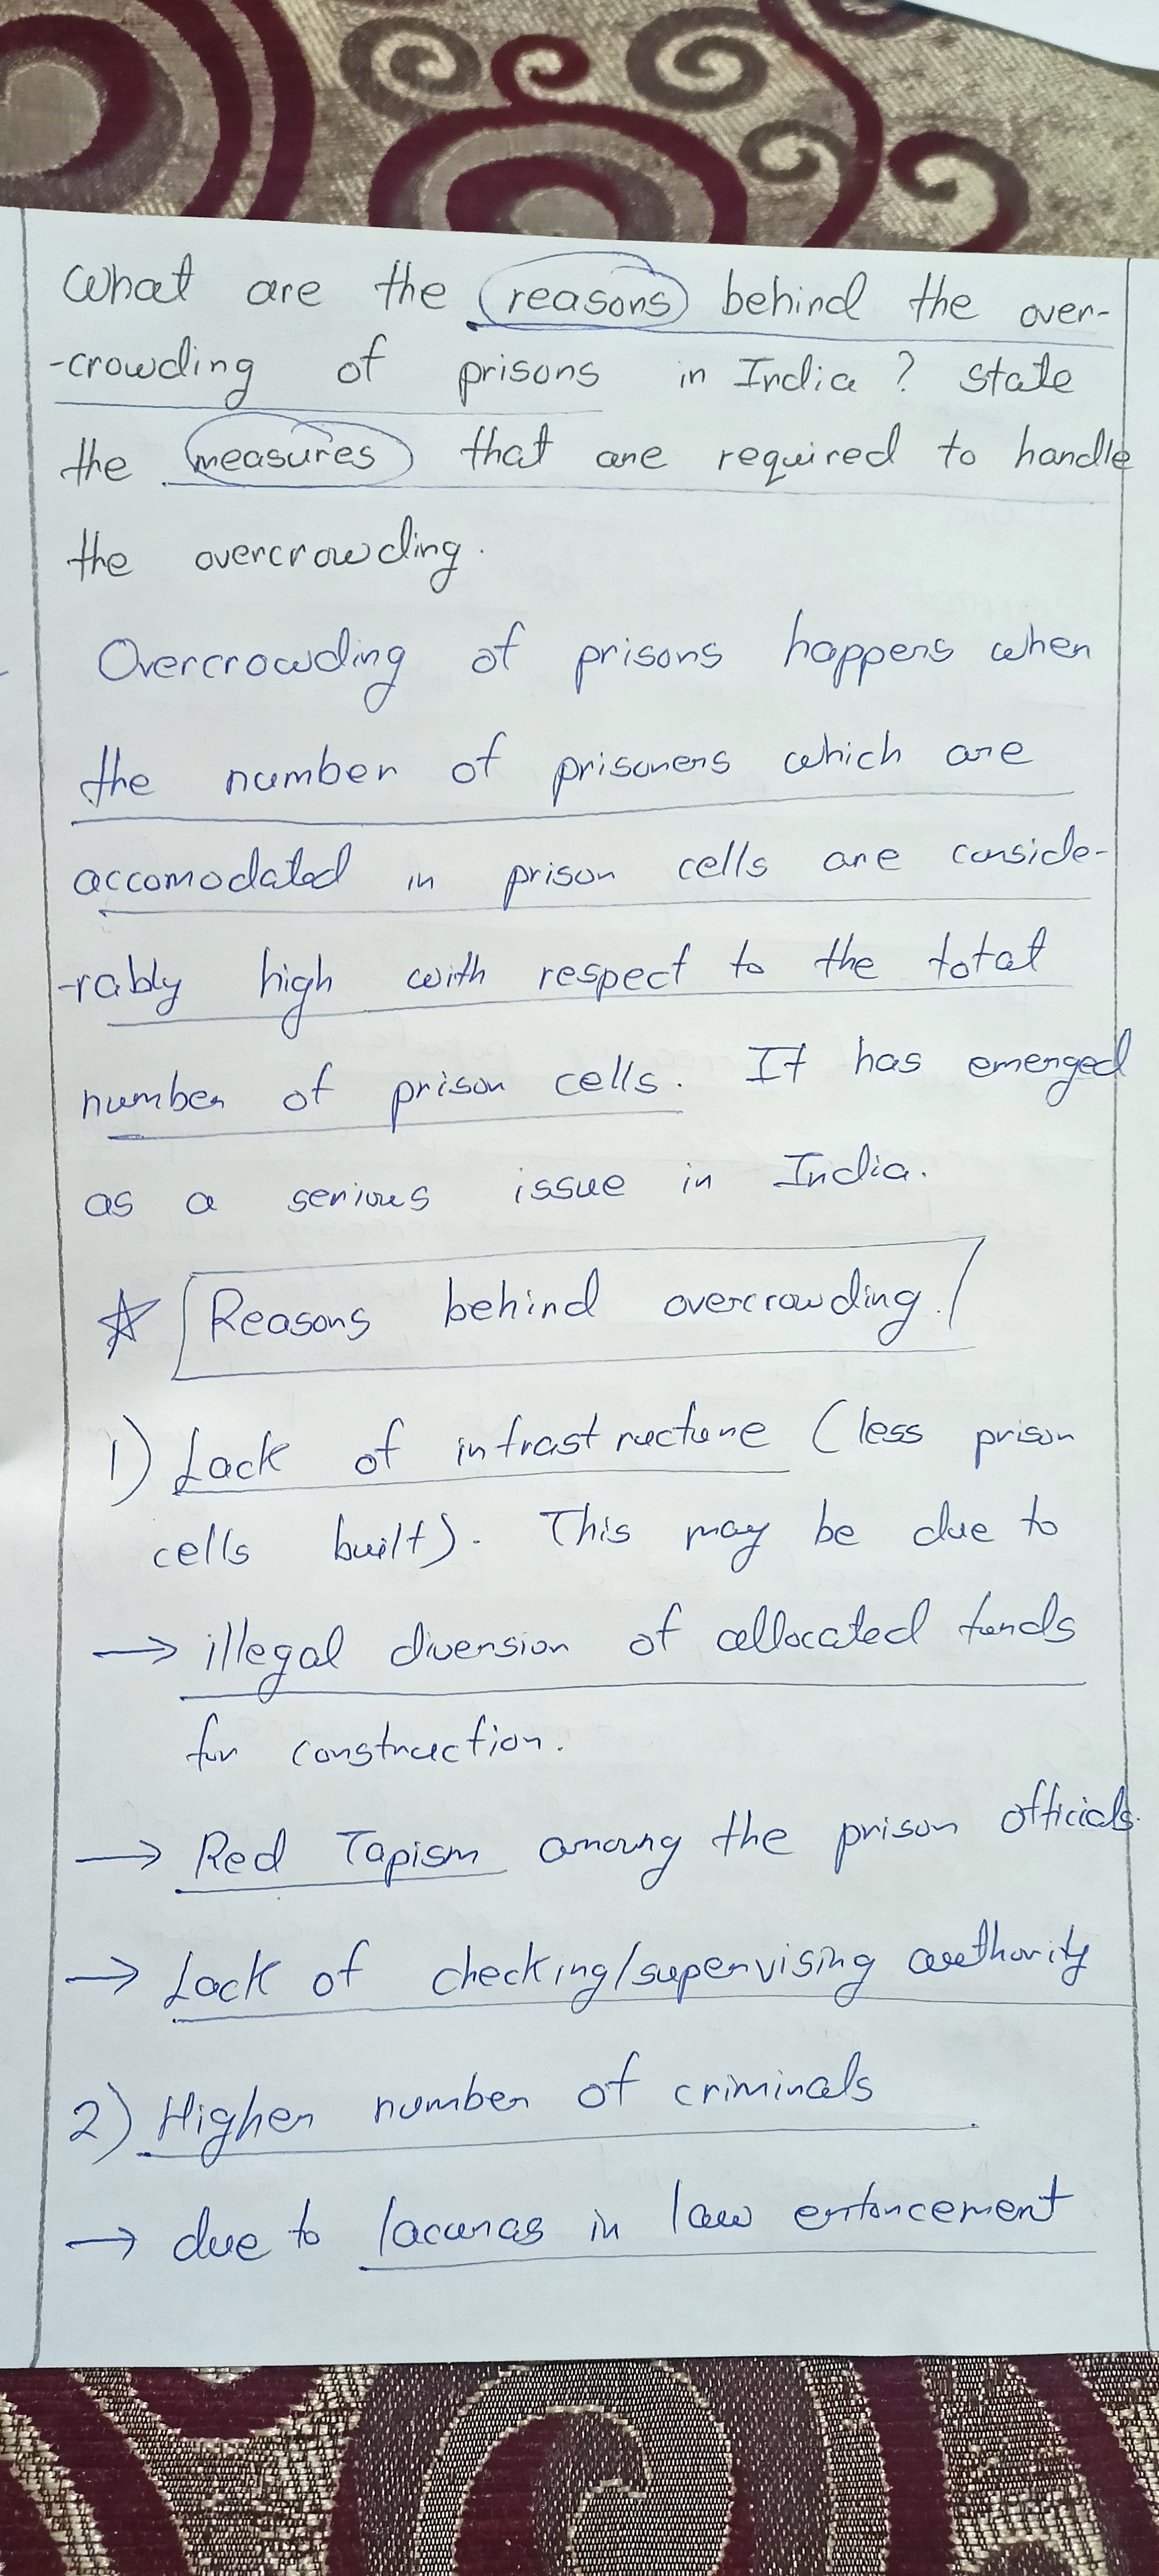 What are the reasons behind the over-
-crowding of prisons in India? State
the measures that are required to handle
the overcrowding.
Overcrowding of prisons happens when
the number of prisoners which are
accomodated in prison cells are conside-
-rably high with respect to the total
number of prison cells. It has emerged
as a serious issue in India.
☆ Reasons behind overcrowding.
1) Lack of infrastructure (less prison
cells built). This may be due to
→ illegal diversion of allocated funds
for construction.
→ Red Tapism among the prison officials.
→ Lack of checking/supervising authority
2) Higher number of criminals.
→ due to lacunas in law enforcement